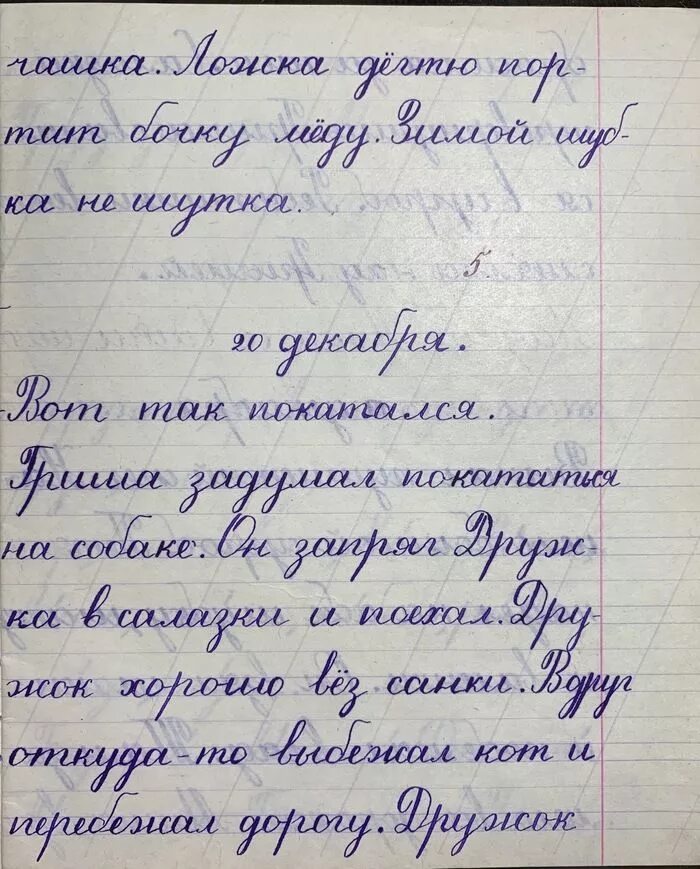 чашка. Ложка дёгтю пор-
тит бочку мёду. Зимой шуб-
ка не шутка.
5
20 декабря.
Вот так покатался.
Гриша задумал покататься
на собаке. Он запряг Друж-
ка в салазки и поехал. Дру-
жок хорошо вёз санки. Вдруг
откуда-то выбежал кот и
перебежал дорогу. Дружок